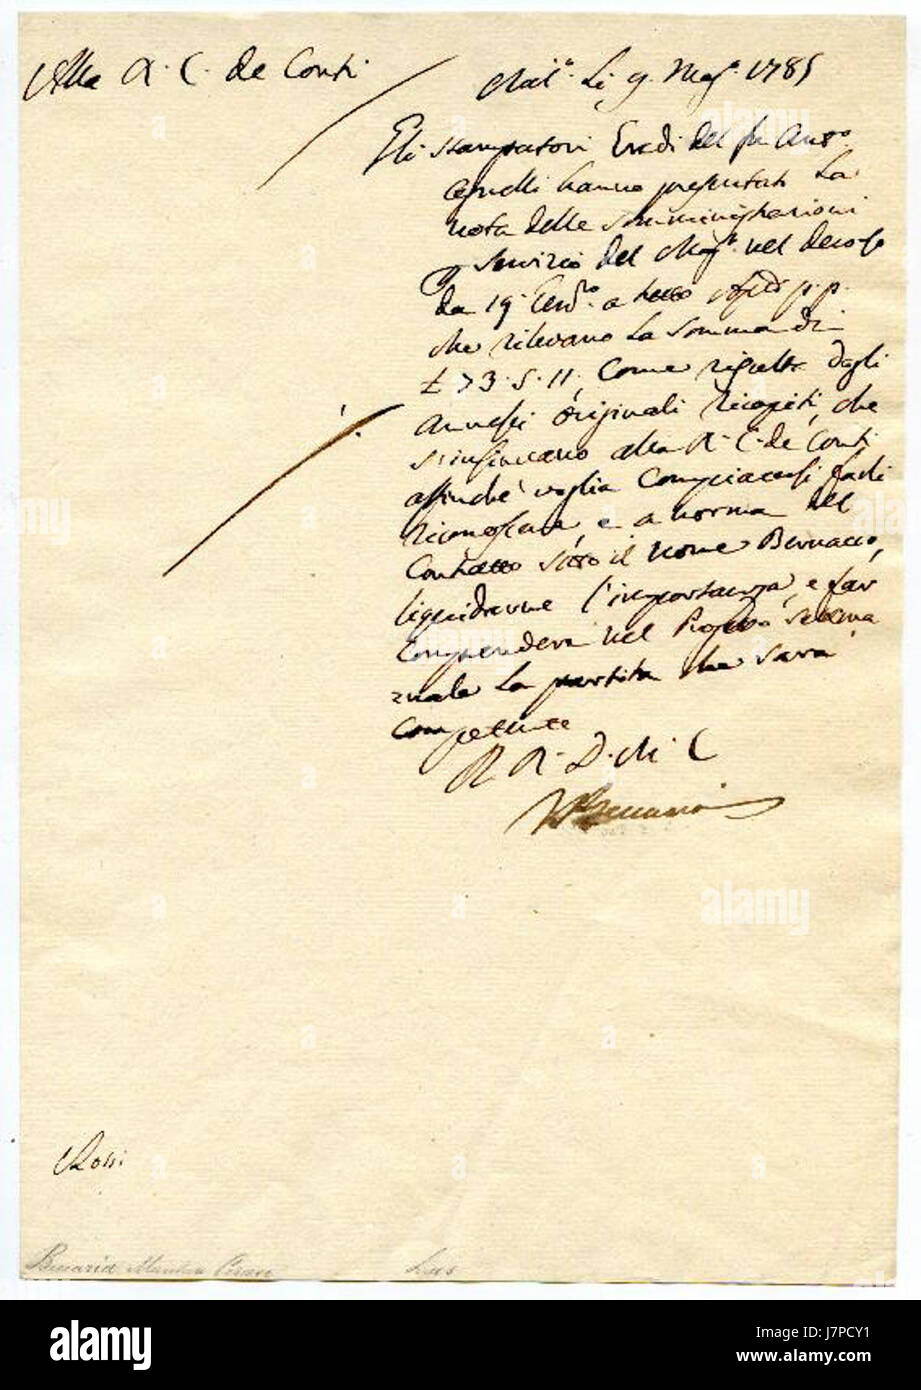 Alla R. C. de Conti
Mil.º Li 9. Mag.º 1785
Gli stampatori Eredi del fu Ant.º
Agnelli hanno presentata La
nota delle somministrazioni
servizio del Mag.º nel decorso
da 19. a tutto p.p.
che rilevano La somma di
£ 73. s. 11. Come risulta dagli
Annessi originali Ricapiti, che
si rimettano alla R. C. de Conti
affinchè voglia Compiacersi farli
riconoscere, e a norma del
Contratto sotto il nome Bernacco,
liquidarne l'importanza, e far
Comprendere nel settima
nale La partita che sarà
Competente
R R. D. M. C
Beccaria
Rossi
Beccaria
alamy
Image ID: J7PCY1
www.alamy.com